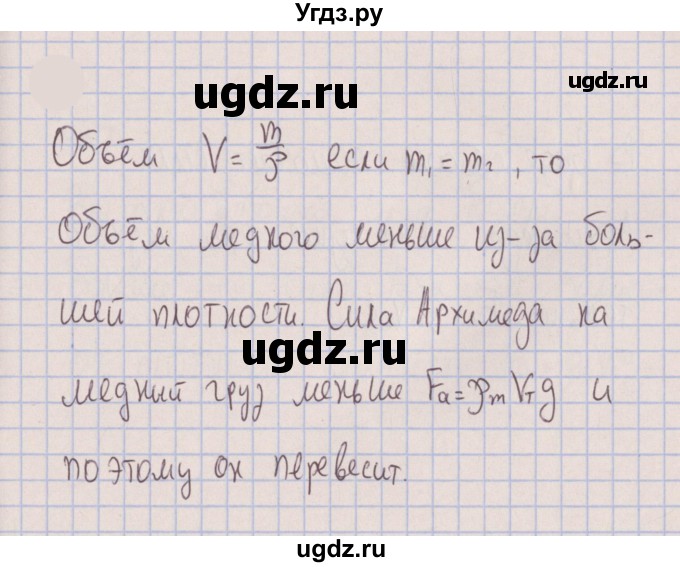 Угдз.ру
ugdz.ru
ugdz.ru
Объём V = m/ρ если m₁ = m₂, то
Объём медного меньше из-за боль-
шей плотности. Сила Архимеда на
ugdz.ru
медный груз меньше Fₐ = ρₘVₜg и
поэтому он перевесит.
ugdz.ru